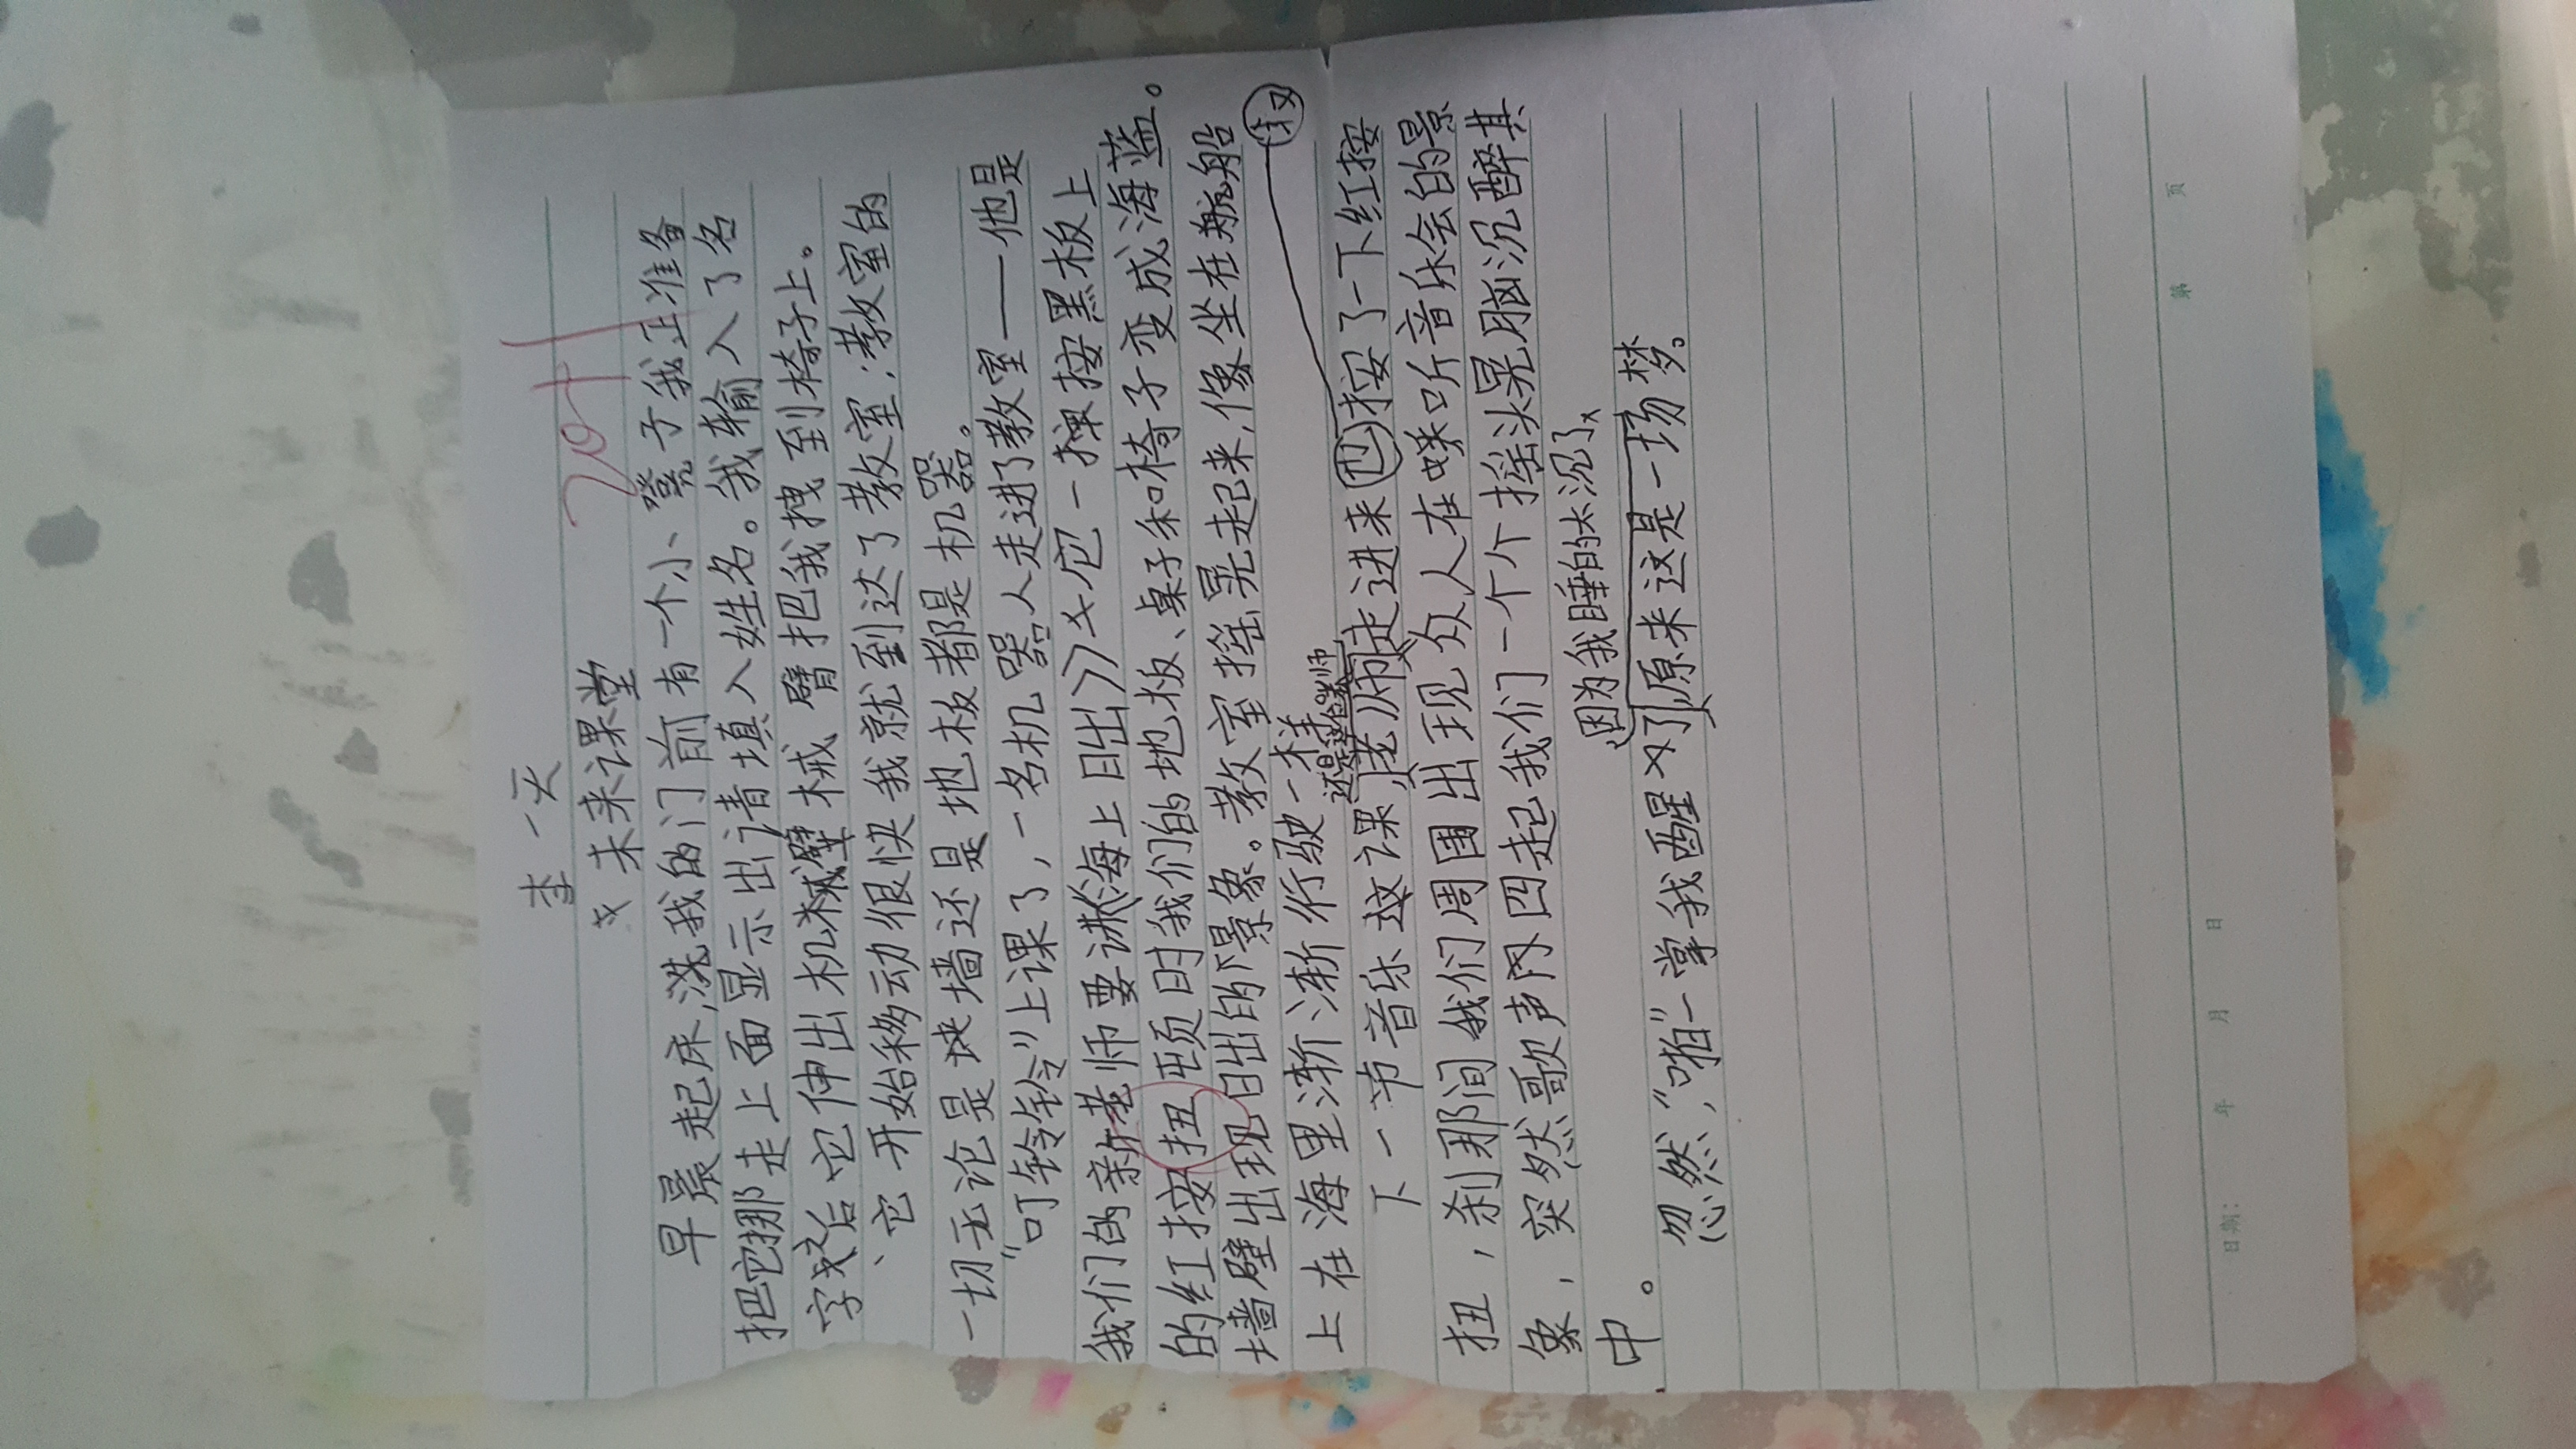 李一天
未来课堂
20+
早晨起床,我的门前有一个小凳子我正准备
把它挪走上面显示出请填入姓名。我输入了名
字之后它伸出机械臂把我拽到椅子上。
它开始移动很快我就到达了教室;教室的
一切无论是块墙还是地板都是机器。
“叮铃铃”上课了,一名机器人走进了教室——他是
我们的新老师要讲《海上日出》它一按黑板上
的红按扭顿时我们的地板、桌子和椅子变成海蓝。
墙壁出现日出的景象。教室摇晃起来,像坐在船
上在海里渐渐行驶一样
还是这名老师
下一节音乐这课老师走进来也按了一下红按
又
扭,刹那间我们周围出现众人在听音乐会的景
象,突然歌声四起我们一个个摇头晃脑沉醉其
中。
因为我睡的太沉了
忽然,“啪”一掌我醒了原来这是一场梦。
日期: 年 月 日 第 页